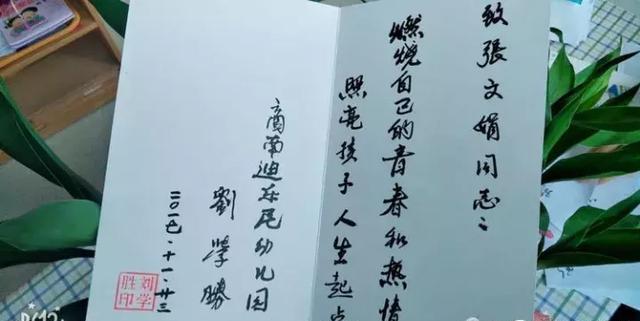 致張文娟同志：
燃烧自己的青春和热情
照亮孩子人生起点
商南迪乐尼幼儿园
劉學勝
二〇一七·十一·廿三
刘学胜印